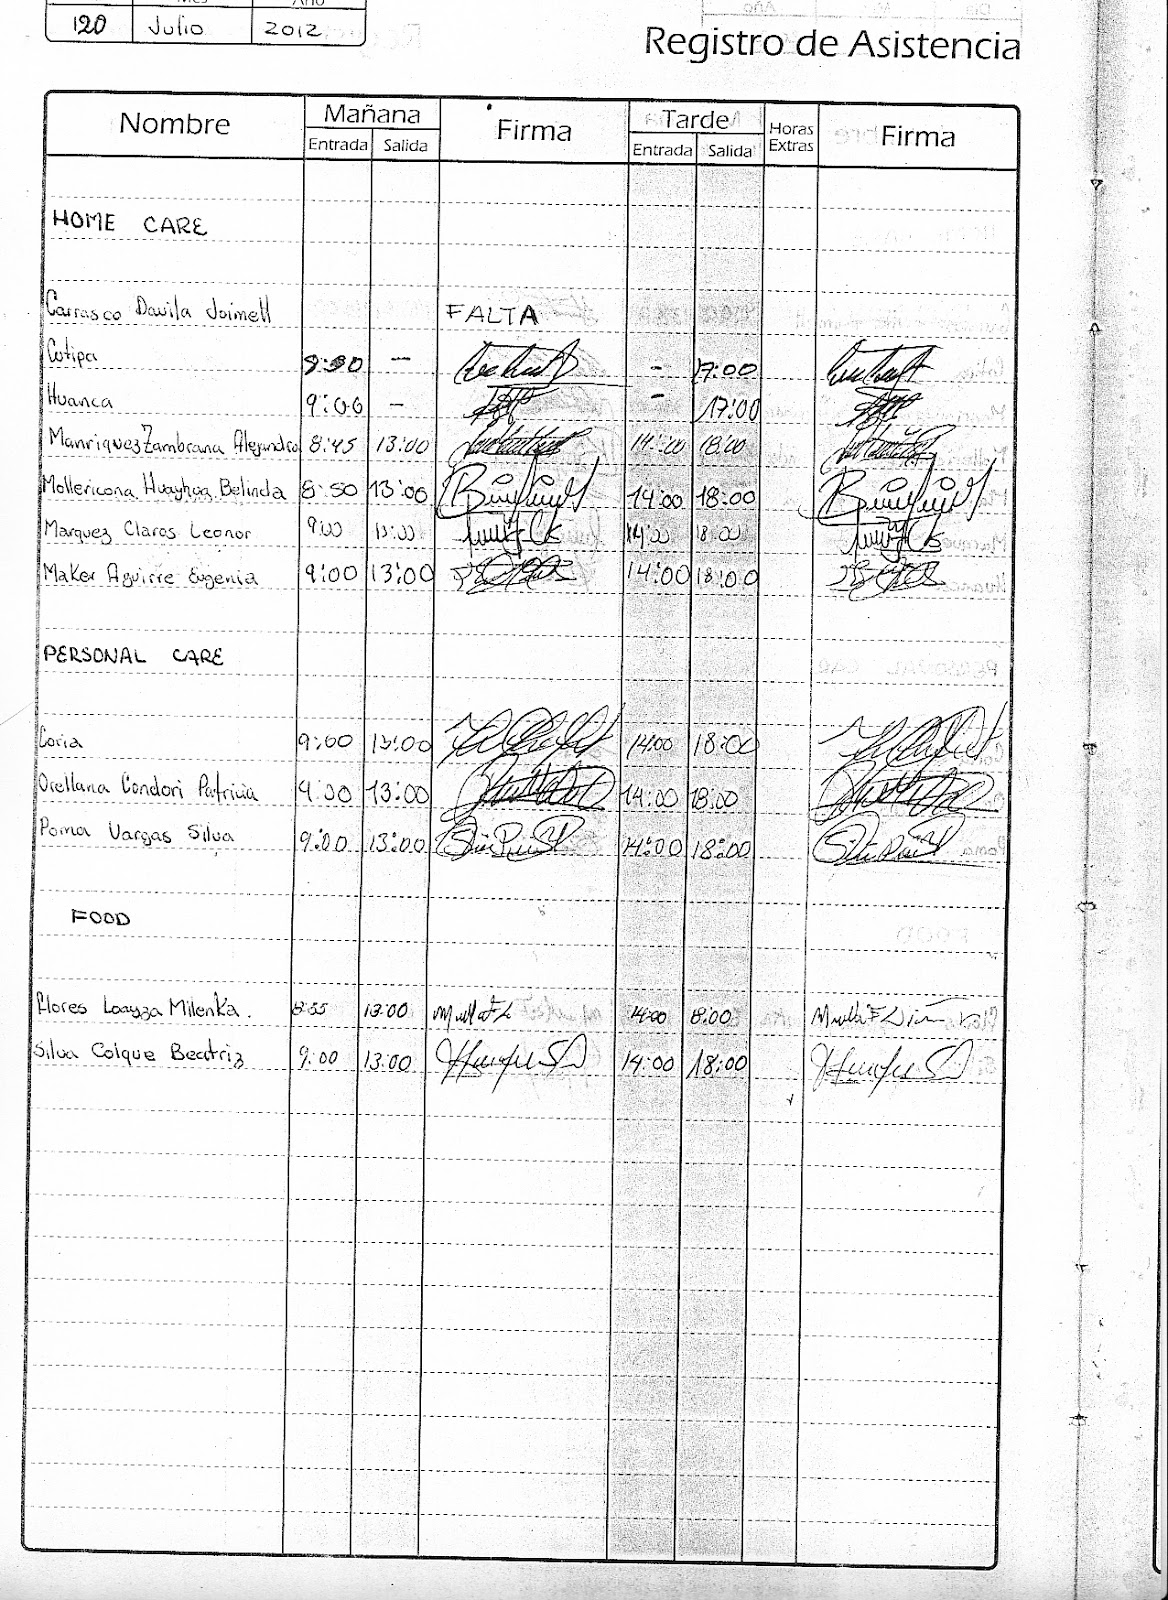 Mes Año
120 Julio 2012
Registro de Asistencia
Nombre Mañana Firma Tarde Horas Extras Firma
Entrada Salida Entrada Salida
HOME CARE
Carrasco Davila Joimell FALTA
Cotipa 8:30 — - 17:00
Huanca 9:06 - - 17:00
Manriquez Zambrana Alejandra 8:45 13:00 14:00 18:00
Mollericona Huayhua Belinda 8:50 13:00 14:00 18:00
Marquez Claros Leonor 9:00 13:00 14:00 18:00
Maker Aguirre Eugenia 9:00 13:00 14:00 18:00
PERSONAL CARE
Coria 9:00 13:00 14:00 18:00
Orellana Condori Patricia 9:00 13:00 14:00 18:00
Poma Vargas Silva 9:00 13:00 14:00 18:00
FOOD
Flores Loayza Milenka. 8:55 13:00 14:00 18:00
Silva Colque Beatriz 9:00 13:00 14:00 18:00